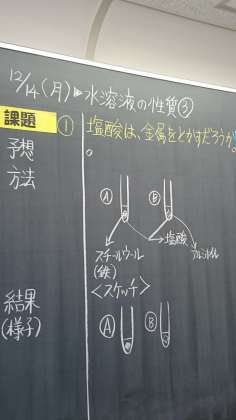 12/14(月)▶水溶液の性質③
課題 ① 塩酸は、金属をとかすだろうか
。
予想
方法
Ⓐ Ⓑ
塩酸
スチールウール
(鉄)
アルミホイル
<スケッチ>
結果
(様子)
Ⓐ Ⓑ